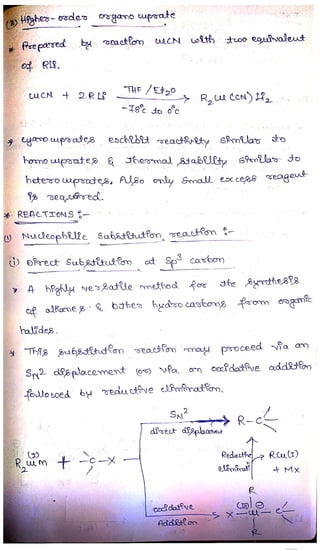 (3) Higher-order organocuprate
* Prepared by reaction CuCN with two equivalent
of RLi.
CuCN + 2RLi THF / Et2O → R2Cu(CN)Li2
-78°c to 0°c
* cyanocuprates exhibit reactivity similar to
homocuprates & thermal stability similar to
heterocuprates, Also only small excess reagent
is required.
* REACTIONS :-
(1) Nucleophilic Substitution reaction :-
(i) Direct Substitution at Sp3 carbon
* A highly versatile method for the synthesis
of alkanes & other hydrocarbons from organic
halides.
* This substitution reaction may proceed via an
SN2 displacement (or) via an oxidative addition
followed by reductive elimination.
SN2
direct displacement → R-C-
R2Cu(I)M + -C-X
Reductive → RCu(I)
eliminatn + MX
R
oxidative
Addition → X-Cu(III)⊖-C-
R